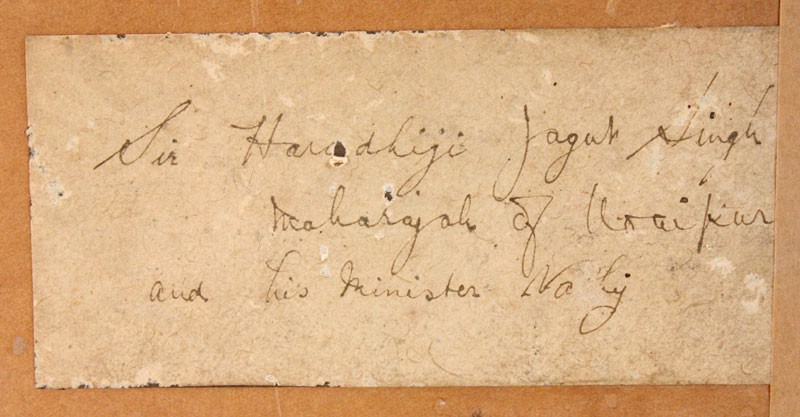 Sir Haradhiji Jagut Singh
Maharajah of
and his Minister